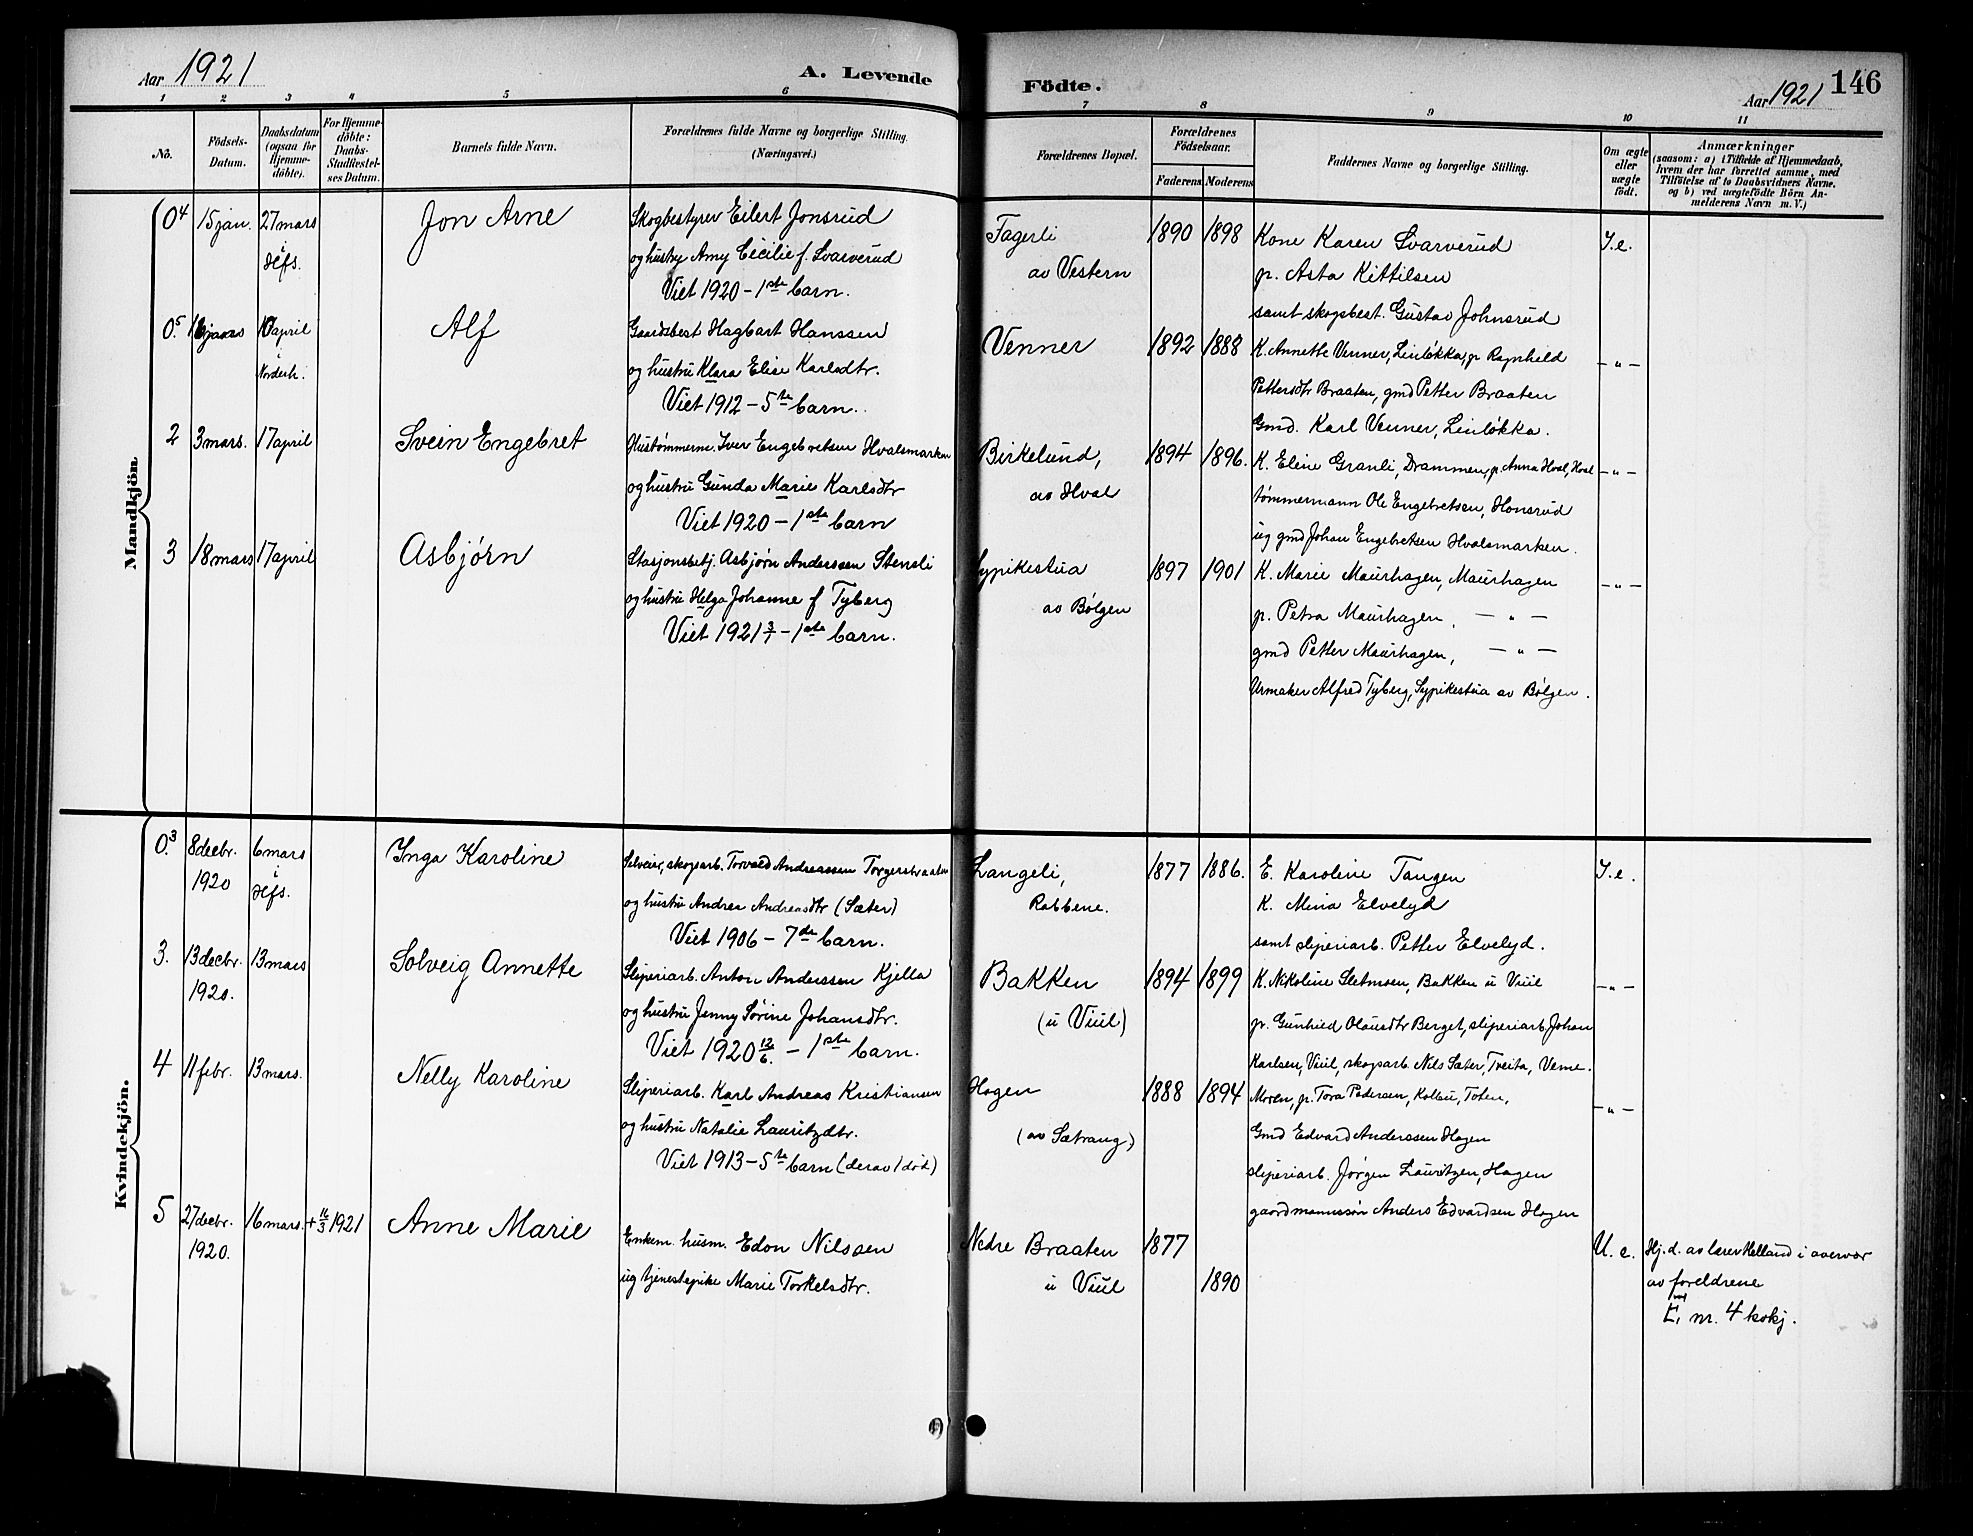 Aar 1921
A. Levende
Födte.
Aar 1921
146
1 2 3 4 5 6 7 8 9 10 11
No.
Födsels-Datum.
Daabsdatum (ogsaa for Hjemme-döbte).
For Hjemme-döbte: Daabs-Stadfæstel-ses Datum.
Barnets fulde Navn.
Forældrenes fulde Navne og borgerlige Stilling.
(Næringsvei.)
Forældrenes Bopæl.
Forældrenes Födselsaar.
Faderens
Moderens
Faddernes Navne og borgerlige Stilling.
Om ægte eller uægte födt.
Anmærkninger
(saasom: a) i Tilfælde af Hjemmedaab,
hvem der har forrettet samme, med
Tilföielse af to Daabsvidners Navne,
og b) ved uægtefödte Börn An-
melderens Navn m. V.)
Mandkjön.
0.4 15 jan. 27 mars i Hfs. Jon Arne
Skogbestyrer Eilert Jonsrud
og hustru Amy Cecilie f. Svarverud
Viet 1920 - 1ste barn.
Fagerli
av Vestern
1890 1898
Kone Karen Svarverud
p. Asta Kittilsen
samt skogsbest. Gustav Johnsrud
Y.e.
0.5 april i Norderh. Alf
Gaardsbest Hagbart Hanssen
og hustru Klara Elise Karlsdtr.
Viet 1912 - 5te barn.
Venner
1892 1888
K. Annette Venner, Linløkka, p. Ragnhild
Pettersdtr Braaten, gmd Petter Braaten
Gmd. Karl Venner, Linløkka.
— " —
2 3 mars. 17 april Svein Engebret
Hustømmerm. Iver Engebretsen Hvalsmarken
og hustru Gunda Marie Karlsdtr
Viet 1920 - 1ste barn
Birkelund,
av Hval
1894 1896.
K. Eline Granli, Drammen, p. Anna Hval, Hval
tømmermann Ole Engebretsen, Honsrud
ug gmd Johan Engebretsen Hvalsmarken.
— " —
3 18 mars 17 april Asbjørn
Stasjonsbetj. Asbjørn Anderssen Stensli
og hustru Helga Johanne f Tyberg
Viet 1921 3/1 - 1ste barn.
Sypikestua
av Bølgen
1897 1901
K. Marie Maurhagen, Maurhagen
p. Petra Maurhagen, — " —
gmd Petter Maurhagen, — " —
Urmaker Alfred Tyberg, Sypikestua av Bølgen.
— " —
Kvindekjön.
0.3 8 decbr. 1920 6 mars i Hfs. Inga Karoline
Selveier, skogsarb. Torvald Andreassen Torgersbraaten
og hustru Andrea Andreasdtr (Sæter)
Viet 1906 - 7de barn.
Langeli,
Rabbene.
1877 1886.
E. Karoline Tangen
K. Mina Elvelyd
samt sliperiarb. Petter Elvelyd.
Y.e.
3. 13 decbr. 1920. 13 mars Solveig Annette
Sliperiarb. Anton Anderssen Kjella
og hustru Jenny Sørine Johansdtr.
Viet 1920 12/6. - 1ste barn.
Bakken
(u Viul)
1894 1899
K. Nikoline Sletmoen, Bakken u Viul
p. Gunhild Olausdtr Berget, sliperiarb. Johan
Karlsen, Viul, skogsarb. Nils Sæter, Tveita, Veme.
— " —
4 11 febr. 13 mars. Nelly Karoline
Sliperiarb. Karl Andreas Kristiansen
og hustru Natalie Lauritzdtr.
Viet 1913 - 5te barn (derav 1 død)
Hagen
(av Sætrang)
1888 1894
Moren, p. Tora Pedersen, Kolbu, Toten,
Gmd Edvard Anderssen Hagen
sliperiarb. Jørgen Lauritzen, Hagen
gaardmannssøn Anders Edvardsen Hagen
— " —
5 27 decbr. 1920. 16 mars. + 16/3 1921 Anne Marie
Enkem. husm. Edon Nilssen
ug tjenestepike Marie Torkelsdtr.
Nedre Braaten
u Viul
1877
1890
U.e.
Hj. d. av lærer Helland i overvær
av foreldrene
nr. 4 kvkj.